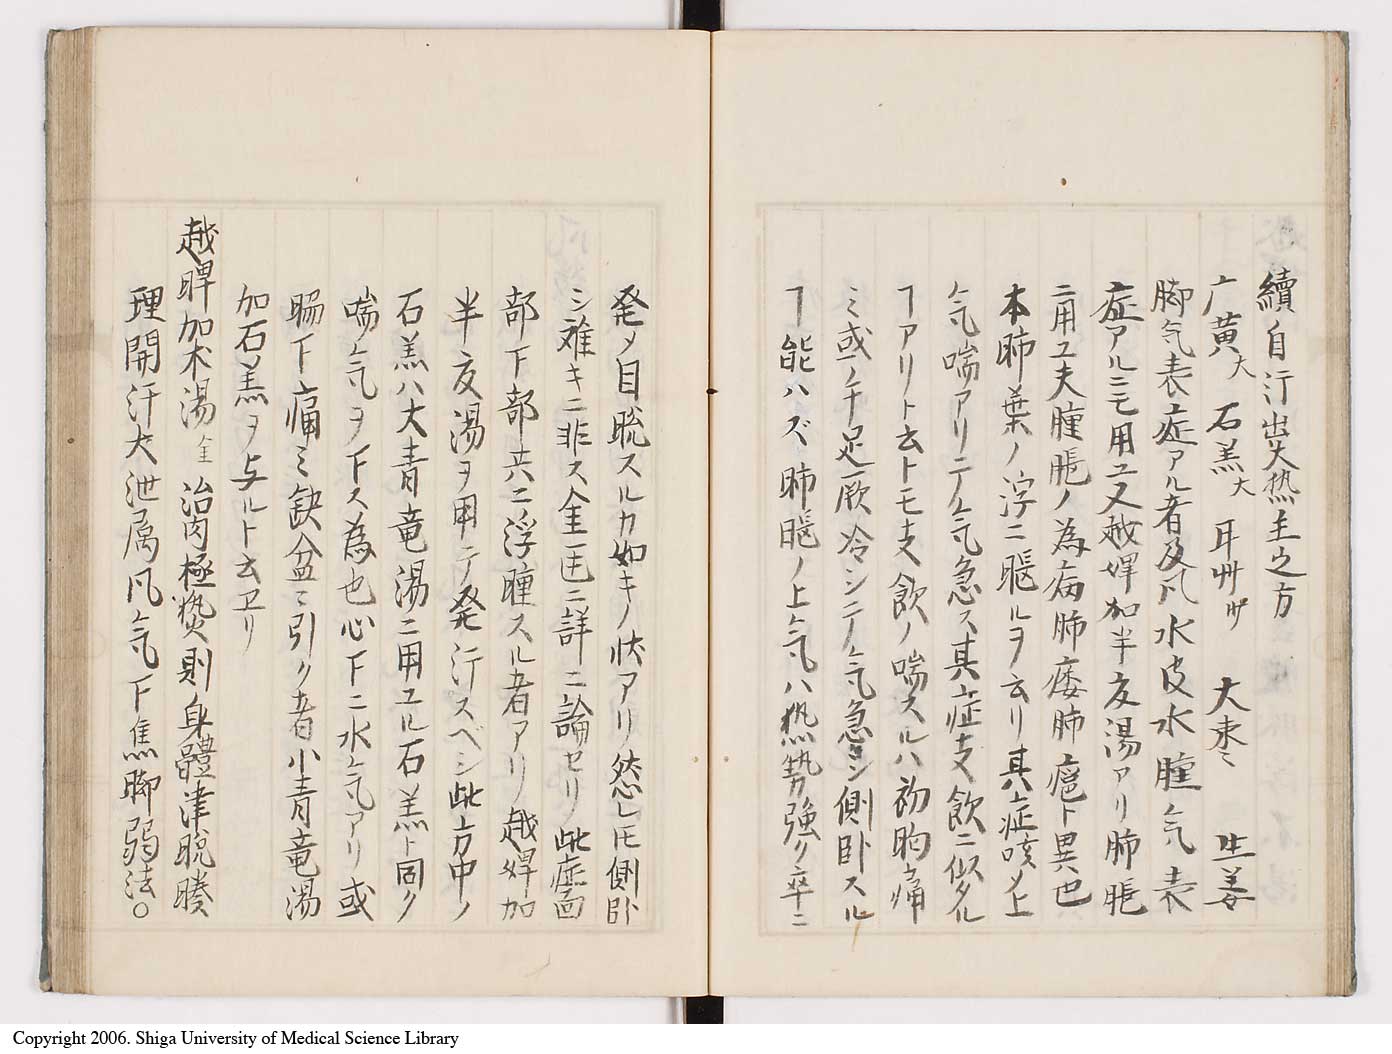 續自汗出大熱主之方
广黄大 石羔大 耳艸 大棗〻 生姜
脚气表症アル者及凨水皮水腫气表
症アルニモ用ユ又越婢加半夏湯アリ肺脹
ニ用ユ夫腫脹ノ為病肺痿肺癰ト異也
本肺葉ノ浮ニ脹ルヲ云リ其症咳〆上
气喘アリテ气急ス其症支飲ニ似タル
ヿアリト云トモ支飲ノ喘スルハ初胸痛
ミ或ハ手足厥冷シテ气急シ側卧スル
ヿ能ハズ肺脹ノ上气ハ熱勢強ク卒ニ
発〆目脱スルカ如キノ状アリ然レ𪜈側卧
シ難キニ非ス金匱ニ詳ニ論セリ此症面
部下部共ニ浮腫スル者アリ越婢加
半夏湯ヲ用テ発汗スベシ此方中ノ
石羔ハ大青竜湯ニ用ユル石羔ト同ク
喘气ヲ下ス為也心下ニ水气アリ或
腸下痛ミ缺盆ニ引ク者小青竜湯
加石羔ヲ与ルト云ヱリ
越婢加朮湯金 治肉極熱則身體津脱腠
理開汗大泄属凨气下焦脚弱法〇
Copyright 2006. Shiga University of Medical Science Library